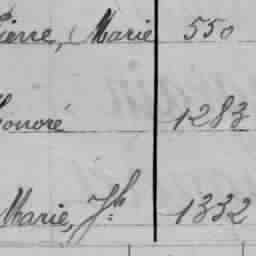 Pierre, Marie 550
Honoré 1283
Marie, Jh 1332